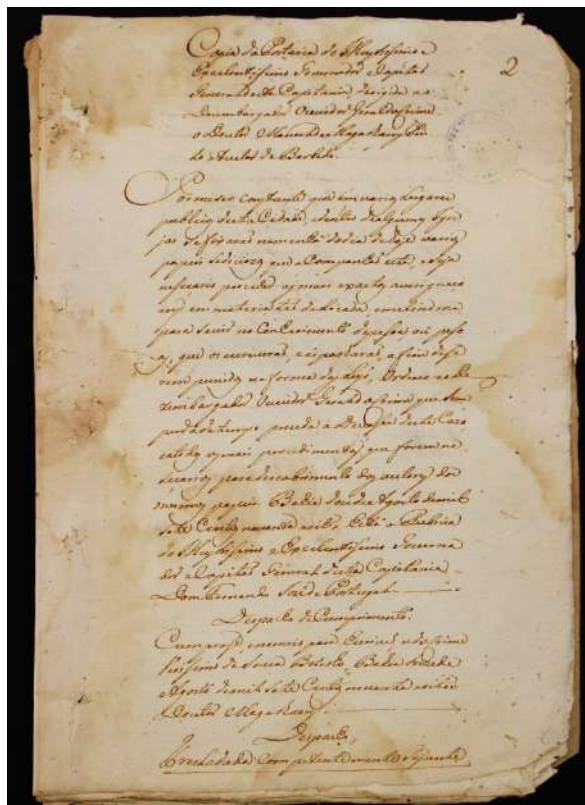 Copia da Portaria do Illustrissimo e
Excelentissimo Governador e Capitão
General desta Capitania dirigida ao
Dezembargador Ouvidor Geral do Crime
o Doutor Manoel de Magalhaens Pin
to e Avelar de Barbedo.
2
Por me ser constante que em varios Lugares
publicos desta Cidade, e dentro de algumas Igre
jas se fixaraõ na manhã do dia de hoje varios
papeis sediciozos que acompanhaõ esta, e seja
necessario proceder as mais exactas averiguaço
ens em materia taõ delicada
para se vir no conhecimento da pessoa, ou pesso
as, que os escreveraõ, e espalharaõ, a fim de se
rem punidos na forma das Leys, Ordeno ao De
zembargador Ouvidor Geral do Crime que sem
perda de tempo proceda a Devassa deste Cazo
e a todos os mais procedimentos, que forem ne
cessarios para descobrimento dos autores dos
mesmos papeis. Bahia doze de Agosto de mil
Sete Centos noventa e oito.
do Illustrissimo e Excelentissimo Governa
dor e Capitão General desta Capitania
Dom Fernando Joze de Portugal.
Despacho de Cumprimento.
Cumprase para Escrivaõ o do Crime
de Souza Bahia de
Agosto de mil Sete Centos noventa e oito
Doutor Magalhaens
Despacho
Trasladada competentemente